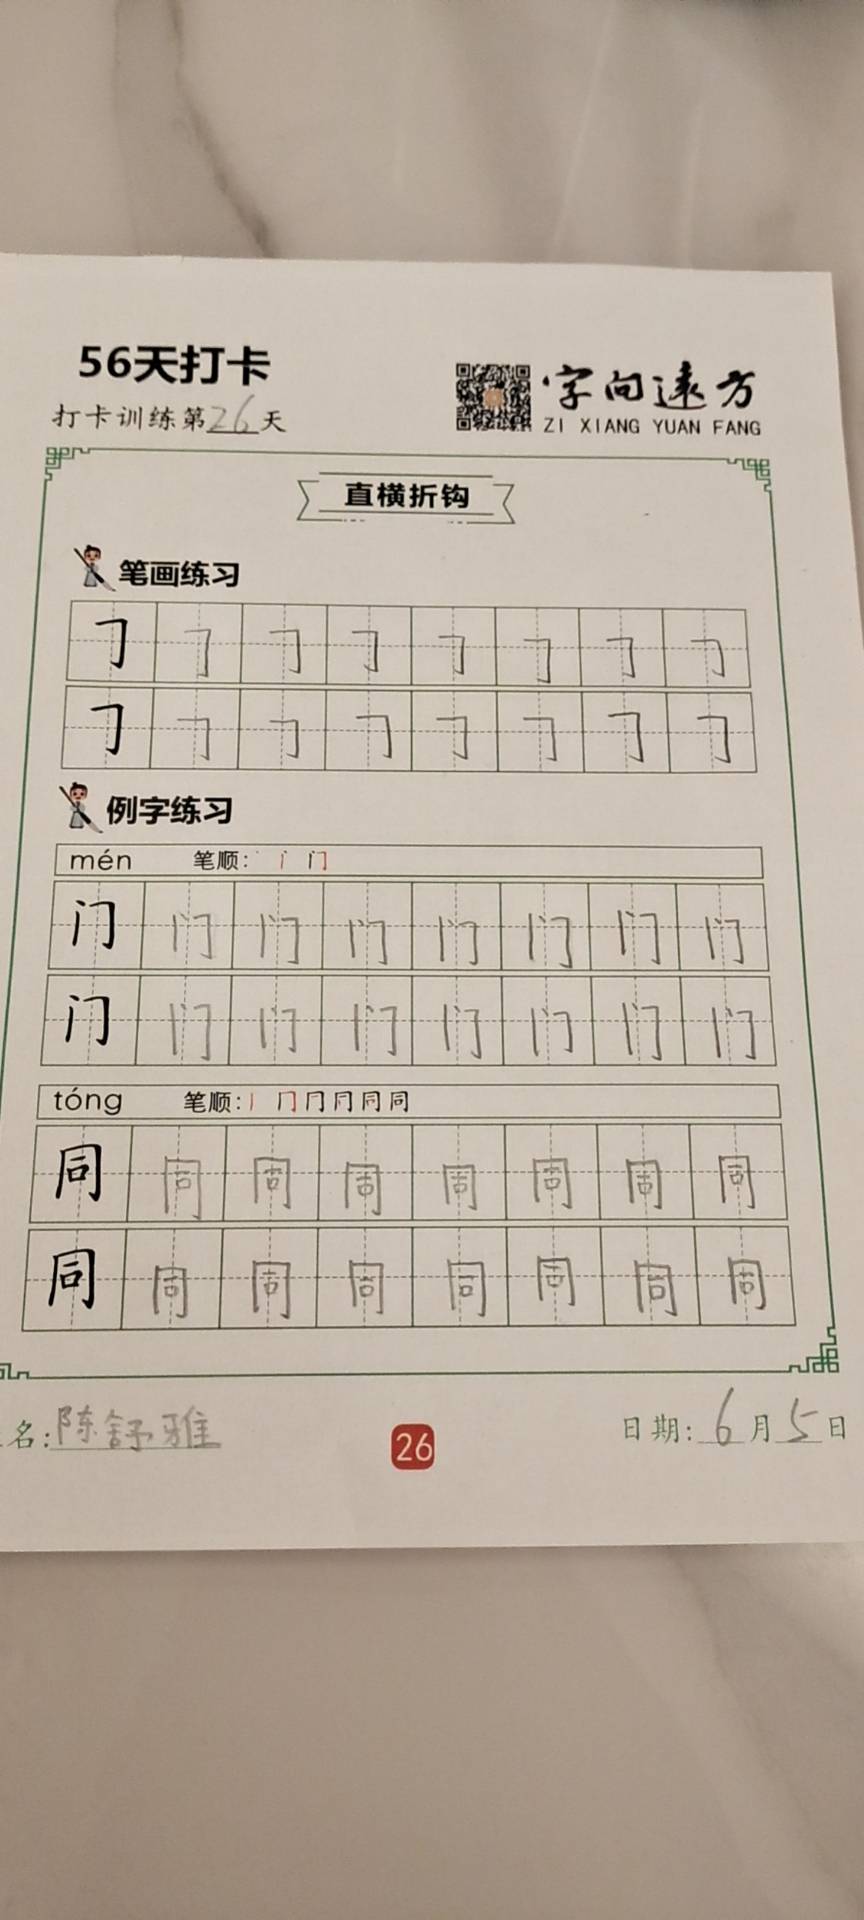 56天打卡
打卡训练第26天
字向远方
ZI XIANG YUAN FANG
直横折钩
笔画练习
𠃌 𠃌 𠃌 𠃌 𠃌 𠃌 𠃌 𠃌
𠃌 𠃌 𠃌 𠃌 𠃌 𠃌 𠃌 𠃌
例字练习
mén 笔顺: 丶 门
门 门 门 门 门 门 门 门
门 门 门 门 门 门 门 门
tóng 笔顺: 丨 冂 同 同
同 同 同 同 同 同 同 同
同 同 同 同 同 同 同 同
名:陈舒雅
26
日期:6月5日